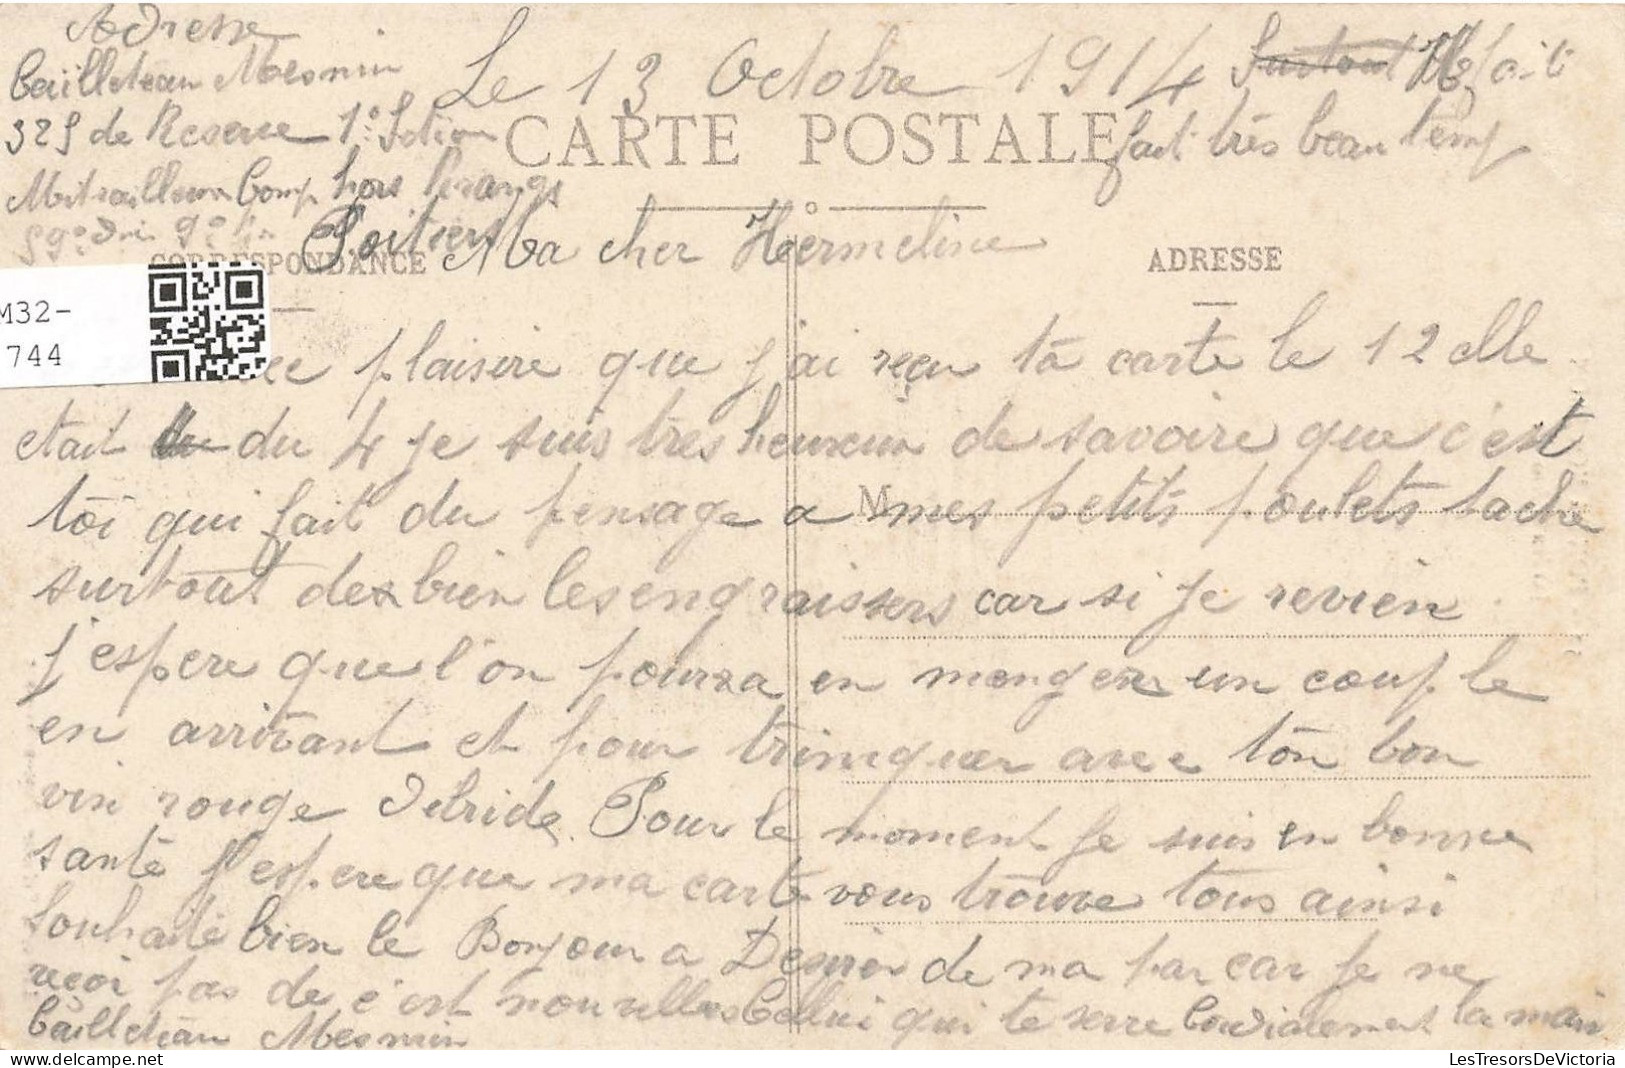 Adresse
Cailleteau Mesmin
325 de Reserve 1e Setion
Mitrailleur Comp hors Prangs
59e Dvi 9e
Poitiers
Le 13 Octobre 1914
Surtout Il fait
fait très beau temp
CARTE POSTALE
CORRESPONDANCE
ADRESSE
M32-
744
Ma cher Hermeline
plaisire que j'ai reçu ta carte le 12 elle
etait du du 4 je suis tres heureux de savoire que c'est
toi qui fait du pensage a mes petits poulets tache
M
surtout des bien les engraissers car si je revien
j'espere que l'on pourra en manger un couple
en arrivant et pour trinquer avec ton bon
vin rouge Pour le moment je suis en bonne
santé j'espere que ma carte vous trouve tous ainsi
souhaite bien le Bonjour a Desirer de ma par car je ne
reçoi pas de c'est nouvelles Cellui qui te serre Cordialement la main
Cailleteau Mesmin
LesTresorsDeVictoria